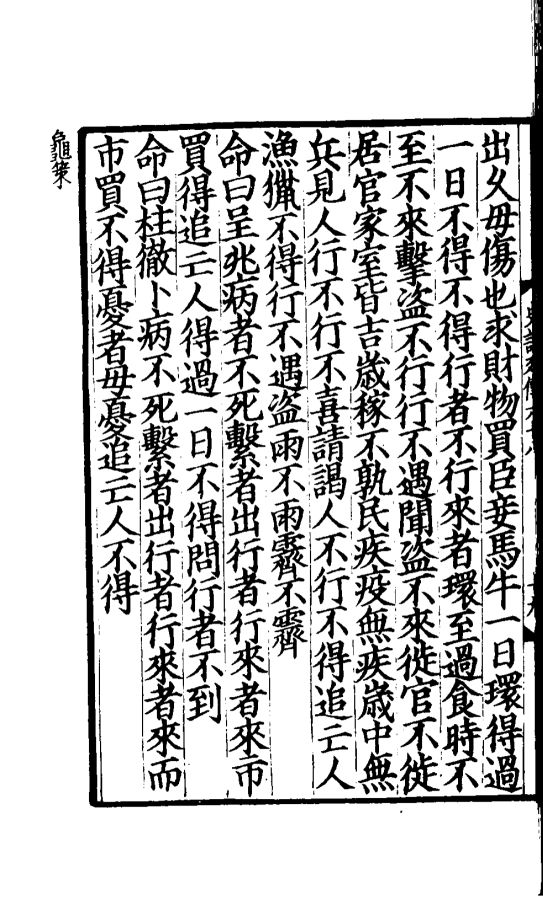 出久毋傷也求財物買臣妾馬牛一日環得過
一日不得不得行者不行來者環至過食時不
至不來擊盜不行行不遇聞盜不來徙官不徙
居官家室皆吉歲稼不孰民疾疫無疾歲中無
兵見人行不行不喜請謁人不行不得追亡人
漁獵不得行不遇盜雨不雨霽不霽
命曰呈兆病者不死繫者出行者行來者來市
買得追亡人得過一日不得問行者不到
命曰柱徹卜病不死繫者出行者行來者來而
市買不得憂者毋憂追亡人不得
龜策